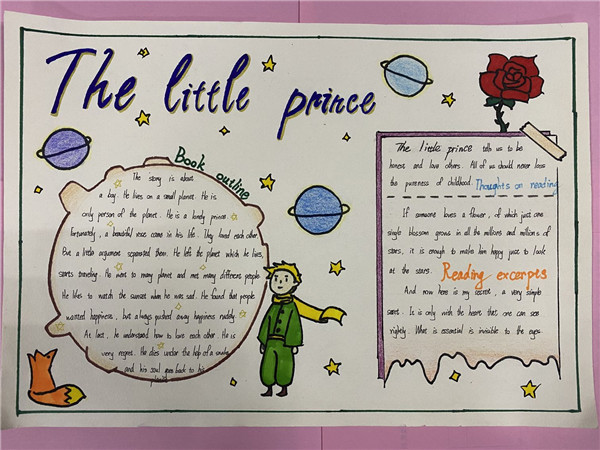 The little prince
Book outline
The story is about
a boy. He lives on a small planet. He is
only person of the planet. He is a lonely prince.
Fortunately, a beautiful rose came in his life. They loved each other.
But a little argument separated them. He left the planet which he lives,
starts traveling. He went to many planet and met many different people.
He likes to watch the sunset when he was sad. He found that people
wanted happiness, but always pushed away happiness rudely.
At last, he understand how to love each other. He is
very regret. He dies under the help of a snake
and his soul goes back to his
planet.
The little prince tells us to be
honest and love others. All of us should never lose
the pureness of childhood. Thoughts on reading
If someone loves a flower, of which just one
single blossom grows in all the millions and millions of
stars, it is enough to make him happy just to look
at the stars. Reading excerpts
And now here is my secret, a very simple
secret. It is only with the heart that one can see
rightly. What is essential is invisible to the eyes.